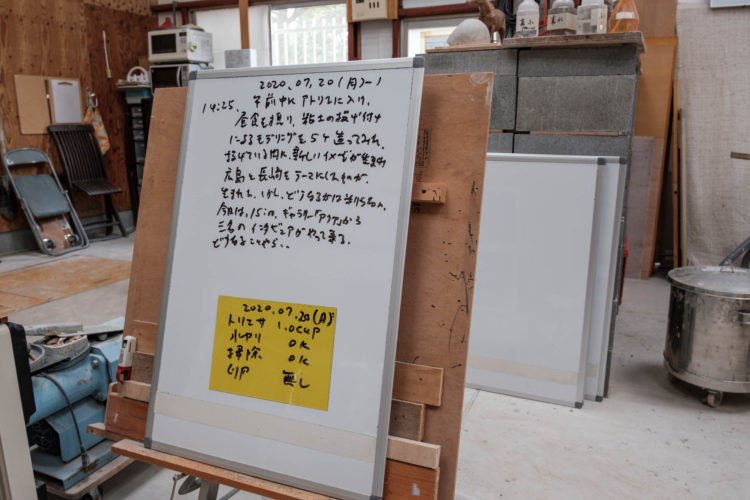 2020.07.20(月)-1
14:25. 午前中にアトリエに入り、
昼食を摂り、粘土の投げ付け
によるモデリングを5ケ造ってみた。
投げている内に、新しいイメージが生まれ
広島と長崎をテーマにしたものが、
生まれた。しかし、どうなるかは分からない。
今日は、15:00、ギャラリー「アクア」から
三名のインタビュアがやって来る。
どうなることやら..
2020.07.20(月)
トリエサ 1.0CUP
水やり OK
掃除 OK
無し